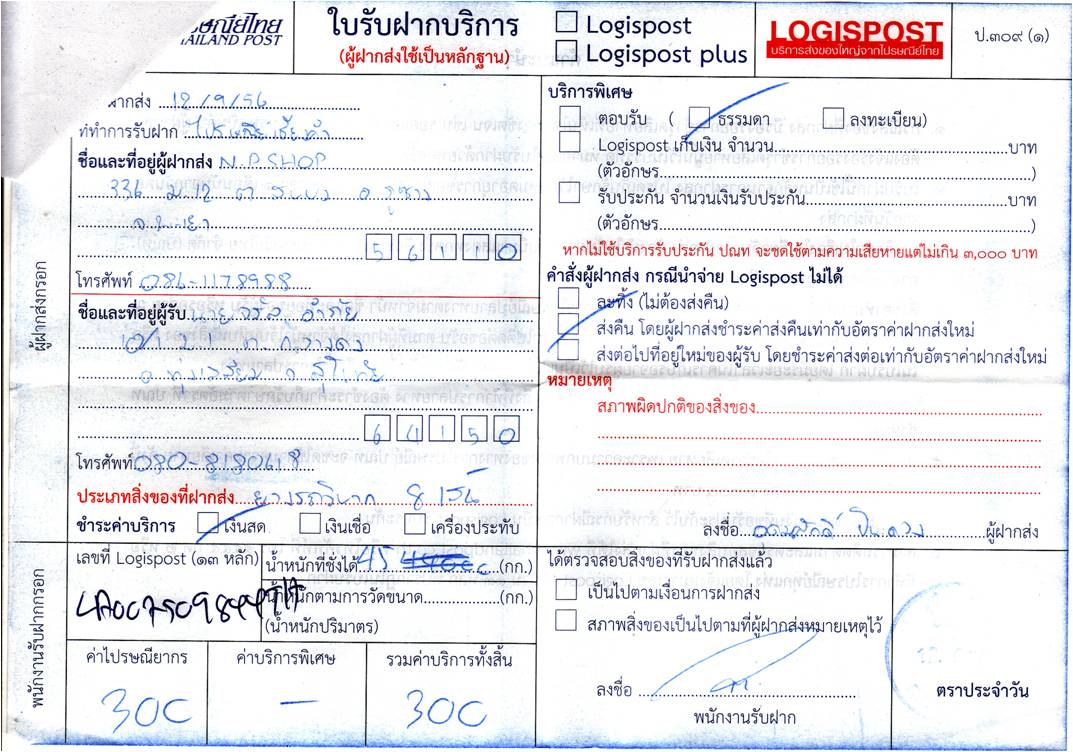 ษณีย์ไทย
THAILAND POST
ใบรับฝากบริการ
(ผู้ฝากส่งใช้เป็นหลักฐาน)
Logispost
Logispost plus
LOGISPOST
บริการส่งของใหญ่จากไปรษณีย์ไทย
ป.๓๐๙ (๑)
ผู้ฝากส่งกรอก
ฝากส่ง 12/9/56
ที่ทำการรับฝาก
ชื่อและที่อยู่ผู้ฝากส่ง N.P SHOP
336 ม.12
56110
โทรศัพท์ 086-1178988
ชื่อและที่อยู่ผู้รับ
64150
โทรศัพท์ 080-8180618
ประเภทสิ่งของที่ฝากส่ง 8 เส้น
ชำระค่าบริการ เงินสด เงินเชื่อ เครื่องประทับ
บริการพิเศษ
ตอบรับ ( ธรรมดา ลงทะเบียน)
Logispost เก็บเงิน จำนวน บาท
(ตัวอักษร )
รับประกัน จำนวนเงินรับประกัน บาท
(ตัวอักษร )
หากไม่ใช้บริการรับประกัน ปณท จะชดใช้ตามความเสียหายแต่ไม่เกิน ๓,๐๐๐ บาท
คำสั่งผู้ฝากส่ง กรณีนำจ่าย Logispost ไม่ได้
ละทิ้ง (ไม่ต้องส่งคืน)
ส่งคืน โดยผู้ฝากส่งชำระค่าส่งคืนเท่ากับอัตราค่าฝากส่งใหม่
ส่งต่อไปที่อยู่ใหม่ของผู้รับ โดยชำระค่าส่งต่อเท่ากับอัตราค่าฝากส่งใหม่
หมายเหตุ
สภาพผิดปกติของสิ่งของ
ลงชื่อ ผู้ฝากส่ง
พนักงานรับฝากกรอก
เลขที่ Logispost (๑๓ หลัก)
น้ำหนักที่ชั่งได้ 45 (กก.)
น้ำหนักตามการวัดขนาด (กก.)
(น้ำหนักปริมาตร)
ค่าไปรษณียากร
300
ค่าบริการพิเศษ
—
รวมค่าบริการทั้งสิ้น
300
ได้ตรวจสอบสิ่งของที่รับฝากส่งแล้ว
เป็นไปตามเงื่อนการฝากส่ง
สภาพสิ่งของเป็นไปตามที่ผู้ฝากส่งหมายเหตุไว้
ลงชื่อ
พนักงานรับฝาก
ตราประจำวัน